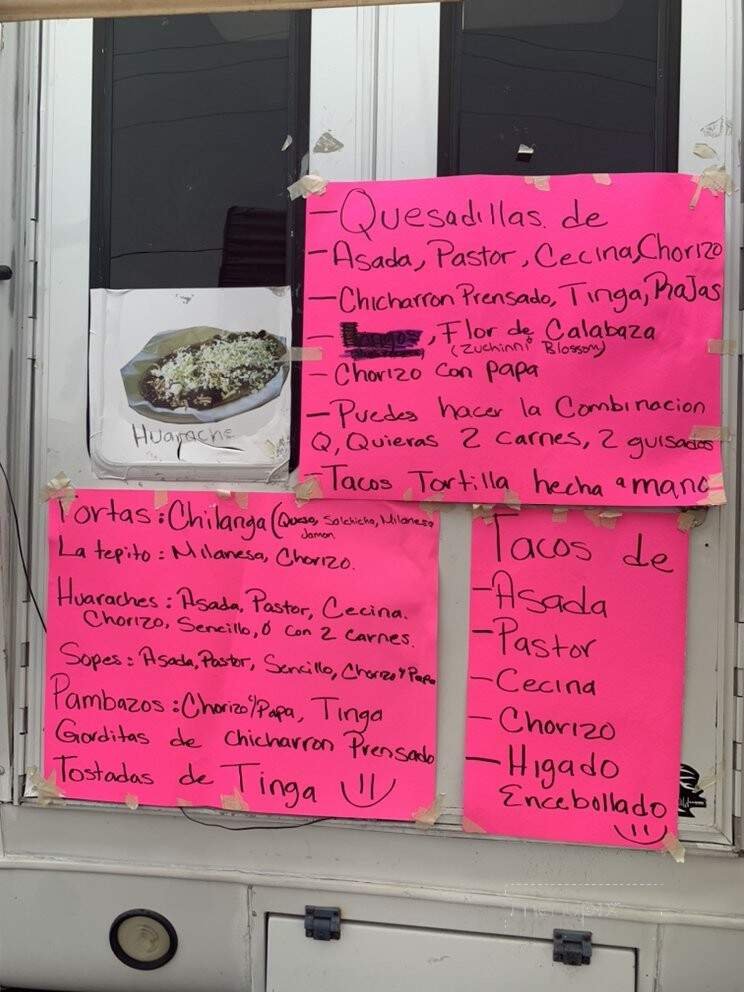 - Quesadillas de
- Asada, Pastor, Cecina, Chorizo
- Chicharron Prensado, Tinga, Rajas
- , Flor de Calabaza
(Zuchinni Blossom)
- Chorizo con papa
- Puedes hacer la Combinacion
Q, Quieras 2 carnes, 2 guisados
- Tacos Tortilla hecha a mano
Huarache
Tortas: Chilanga (Queso, Salchicha, Milanesa
Jamon
La tepito: Milanesa, Chorizo.
Huaraches: Asada, Pastor, Cecina.
Chorizo, Sencillo, O con 2 carnes.
Sopes: Asada, Pastor, Sencillo, Chorizo y Papa
Pambazos: Chorizo y Papa, Tinga
Gorditas de chicharron Prensado
Tostadas de Tinga
Tacos de
- Asada
- Pastor
- Cecina
- Chorizo
- Higado
Encebollado